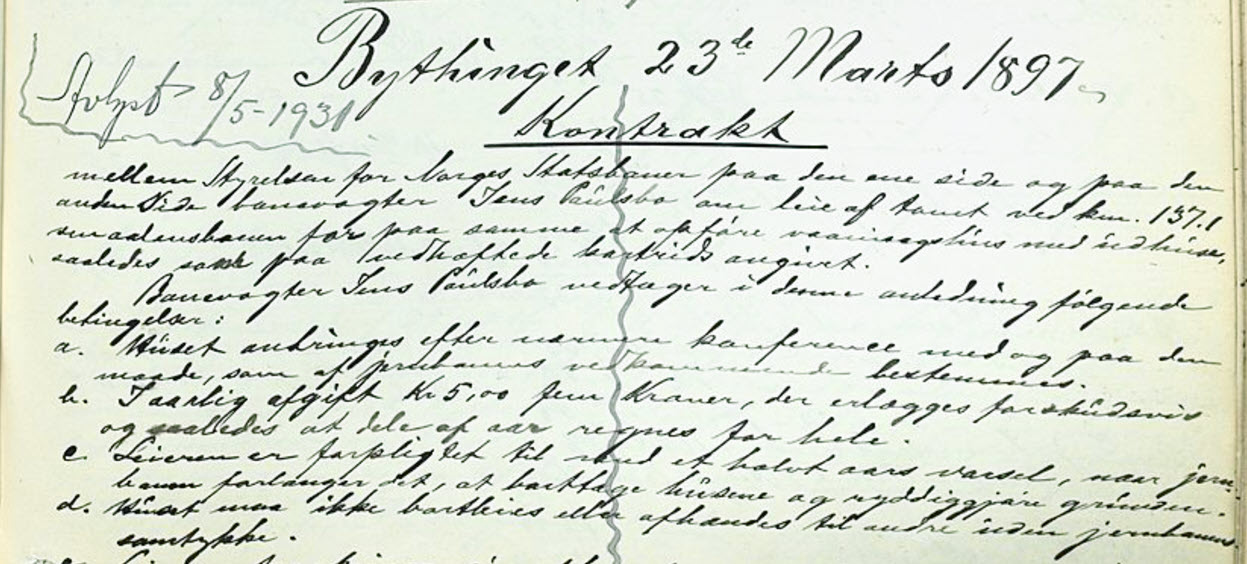 Bythinget 23de Marts 1897
Avlyst 8/5-1931
Kontrakt
mellem Styrelsen for Norges Statsbaner paa den ene side og paa den
anden Side banevogter Jens Paulsbo om leie af tomt ved km. 137.1
smaalensbanen for paa samme at opføre vaaningshus med udhuse,
saaledes som paa vedhæftede kartrids angivet.
Banevogter Jens Paulsbo vedtager i denne anledning følgende
betingelser:
a. Huset anbringes efter nærmere konference med og paa den
maade, som af jernbanens vedkommende bestemmes.
b. I aarlig afgift Kr 5,00 fem Kroner, der erlægges forskudsvis
og saaledes at dele af aar regnes for hele.
c. Leieren er forpligtet til med et halvt aars varsel, naar jern-
banen forlanger det, at borttage husene og ryddiggjøre grunden.
d. Huset maa ikke bortleies eller afhændes til andre uden jernbanens
samtykke.